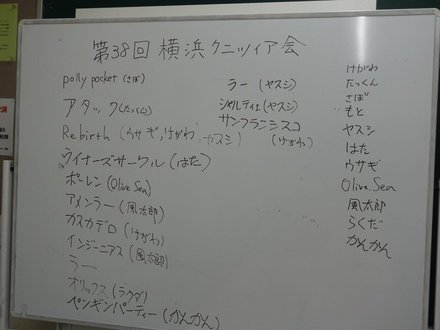 第38回 横浜クニツィア会
polly pocket (さぼ)
アタック(たっくん)
Rebirth (ウサギ,けがわ,ヤスシ)
ライナーズサークル (はた)
ポーレン (Olive.Sea)
アメンラー (風太郎)
カスカデロ (けがわ)
インジーニアス (風太郎)
ラー
オリックス (ラクダ)
ペンギンパーティー (かんかん)
ラー (ヤスシ)
シャルティエ (ヤスシ)
サンフランシスコ
(けがわ)
けがわ
たっくん
さぼ
もと
ヤスシ
はた
ウサギ
Olive.Sea
風太郎
らくだ
かんかん